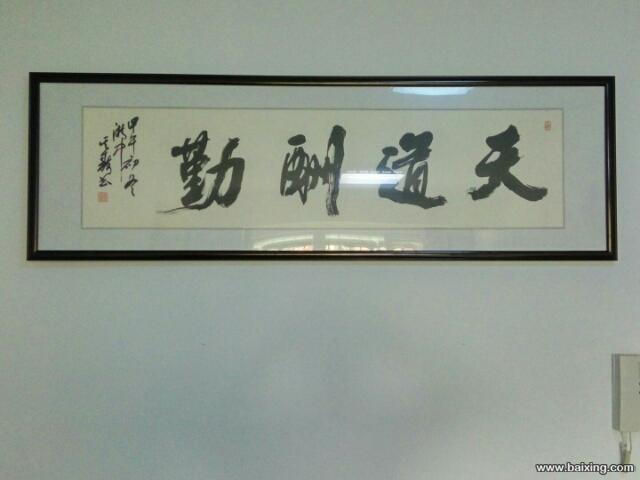 天道酬勤
甲午初冬
www.baixing.com